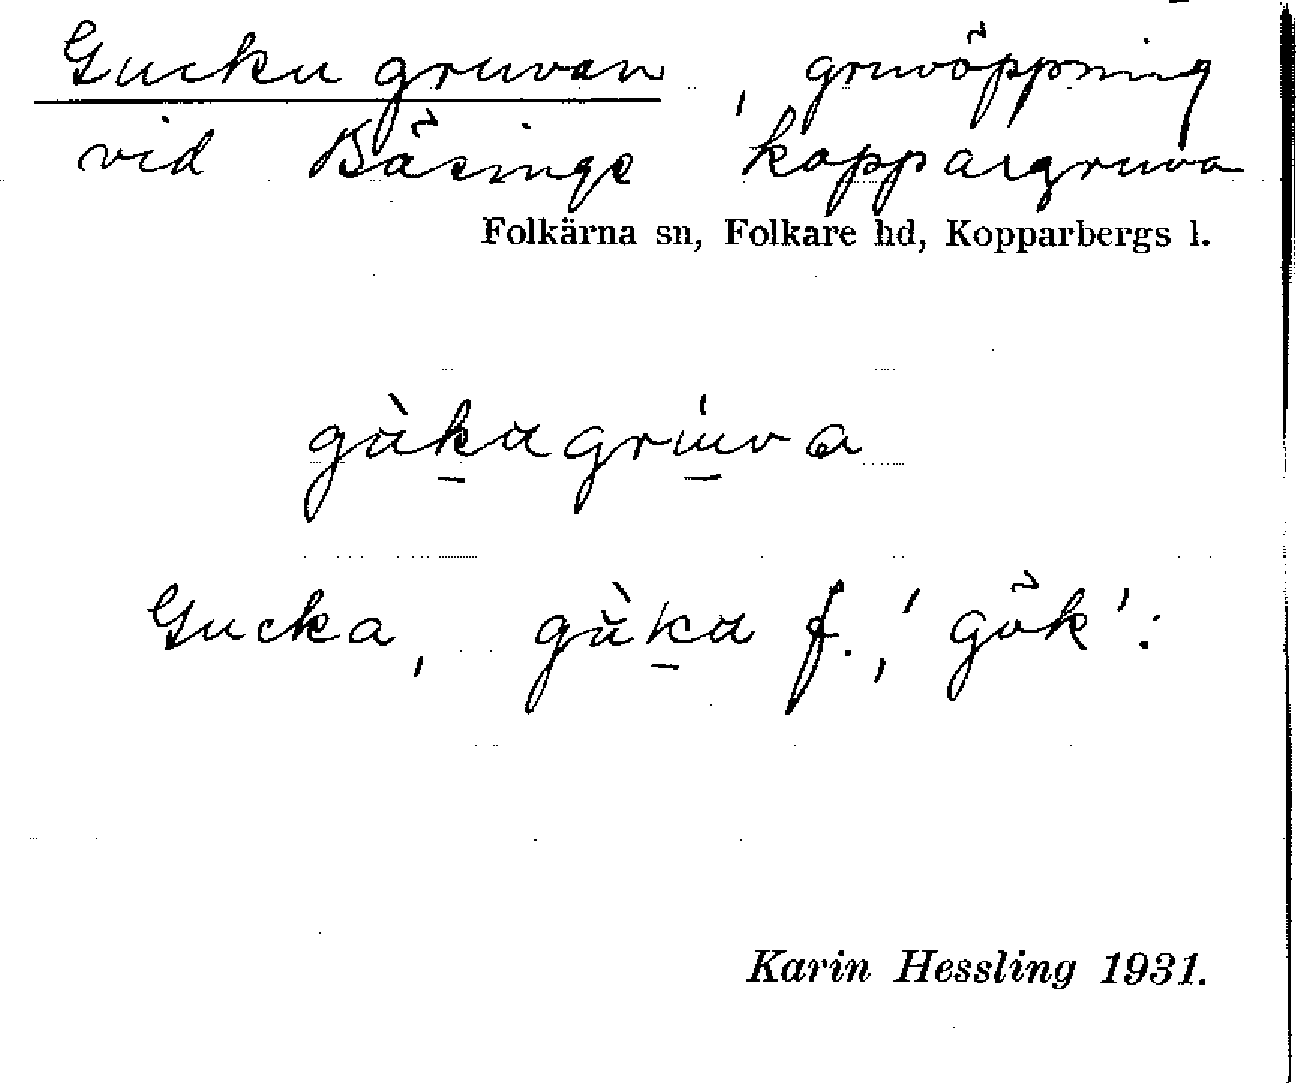 Guckugruvan, gruvöppning
vid Bäsinge koppargruva
Folkärna sn, Folkare hd, Kopparbergs l.
gùk̠agru̠̍va
Gucka, gùk̠a f., 'gök':
Karin Hessling 1931.